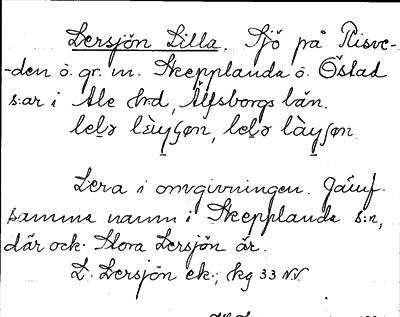 Lersjön Lilla. Sjö på Risve-
-den ö. gr. m. Skepplanda o. Östad
s:ar i Ale hrd, Älfsborgs län.
Lera i omgivningen. Jämf.
samma namn i Skepplanda s:n,
där ock Stora Lersjön är.
L. Lersjön ek., kg 33 NV